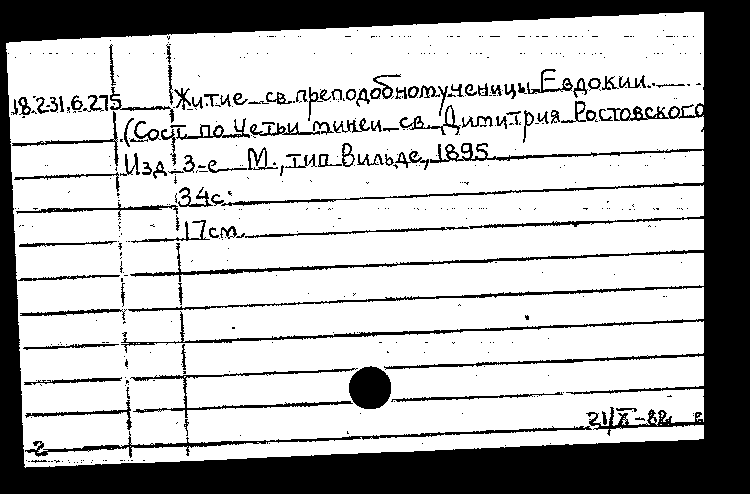 18.231.6.275 Житие св. преподобномученицы Евдокии.
(Сост. по Четьи минеи св. Димитрия Ростовского
Изд. 3-е М., тип. Вильде, 1895
34с.
17см.
21/X-88
2